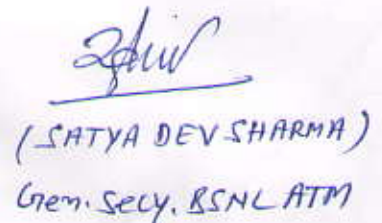 (SATYA DEV SHARMA)
Gen. Secy. BSNL ATM